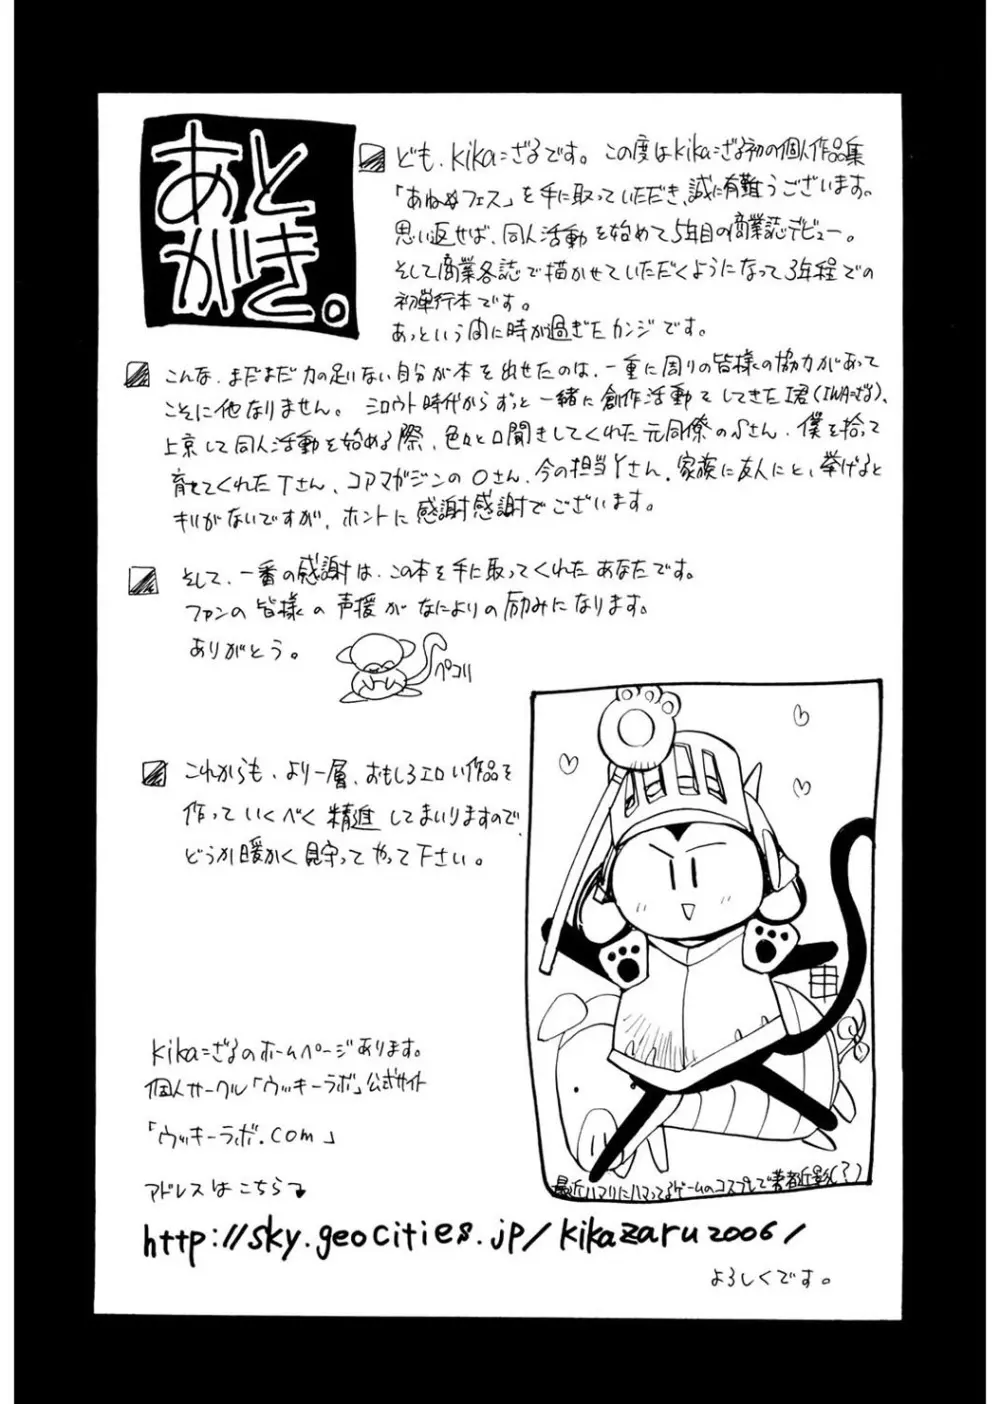 あと
がき。
ども、kika=ざるです。この度はkika=ざる初の個人作品集
「あねⅹフェス」を手に取っていただき、誠に有難うございます。
思い返せば、同人活動を始めて5年目の商業誌デビュー。
そして商業各誌で描かせていただくようになって3年程での
初単行本です。
あっという間に時が過ぎたカンジです。
こんな、まだまだ力の足りない自分が本を出せたのは、一重に周りの皆様の協力があって
こそに他なりません。シロウト時代からずっと一緒に創作活動をしてきたI君(IWA=ざる)、
上京して同人活動を始める際、色々と口聞きしてくれた元同僚のSさん、僕を拾って
育ててくれたTさん、コアマガジンのOさん、今の担当Yさん、家族に友人にと、挙げると
キリがないですが、ホントに感謝感謝でございます。
そして、一番の感謝は、この本を手に取ってくれたあなたです。
ファンの皆様の声援がなによりの励みになります。
ありがとう。
ペコリ
これからも、より一層、おもしろエロい作品を
作っていくべく精進してまいりますので、
どうか暖かく見守ってやって下さい。
kika=ざるのホームページあります。
個人サークル「ウッキーラボ」公式サイト
「ウッキーラボ.com」
アドレスはこちら
http://sky.geocities.jp/kikazaru2006/
よろしくです。
最近ハマりにハマってるゲームのコスプレで著者近影(?)